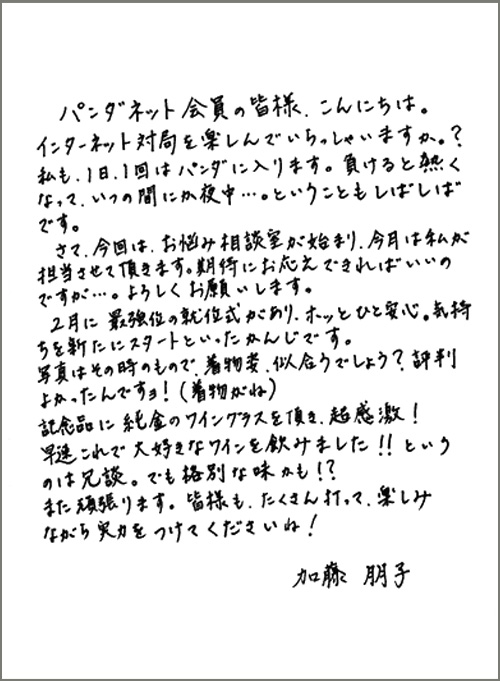 パンダネット会員の皆様、こんにちは。
インターネット対局を楽しんでいらっしゃいますか。?
私も、1日、1回はパンダに入ります。負けると熱く
なって、いつの間にか夜中…。ということもしばしば
です。
さて、今回は、お悩み相談室が始まり、今月は私が
担当させて頂きます。期待にお応えできればいいの
ですが…。よろしくお願いします。
2月に最強位の就位式があり、ホッとひと安心。気持
ちを新たにスタートといったかんじです。
写真はその時のもので、着物姿、似合うでしょう?評判
よかったんですョ!(着物がね)
記念品に純金のワイングラスを頂き、超感激!
早速これで大好きなワインを飲みました!!という
のは冗談。でも格別な味かも!?
また頑張ります。皆様も、たくさん打って、楽しみ
ながら実力をつけてくださいね!
加藤 朋子